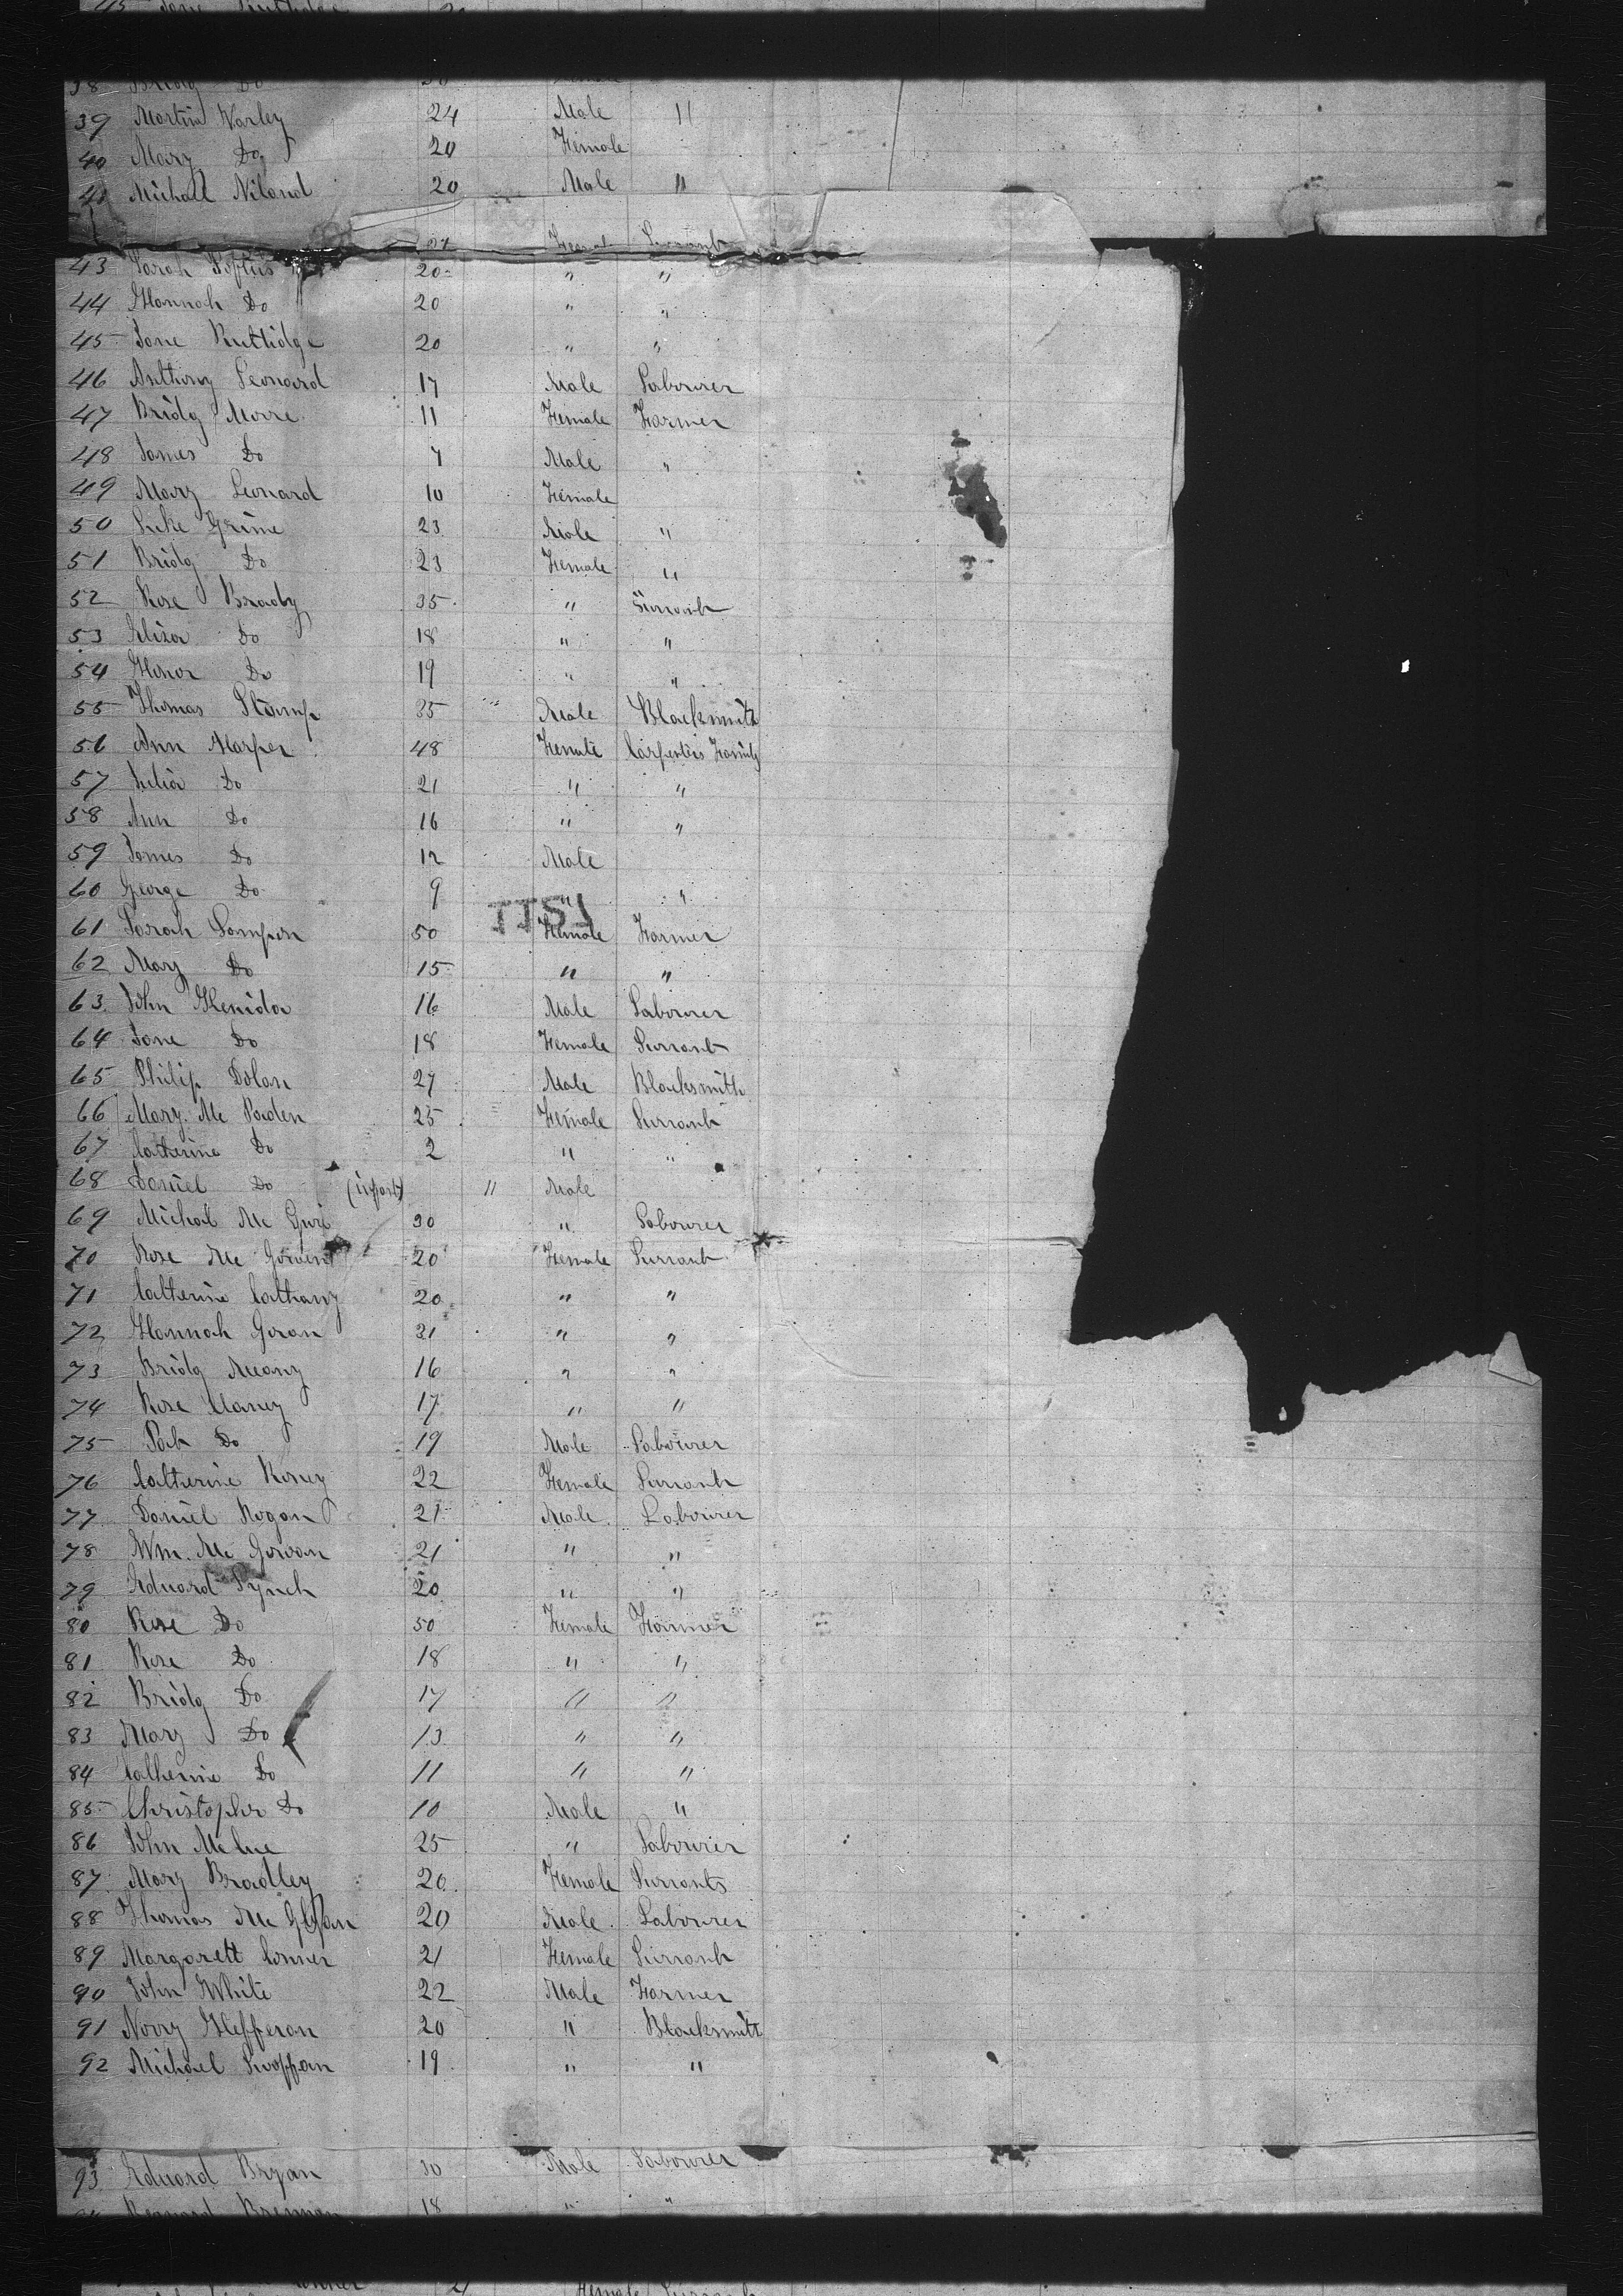 45 Jane Ruttidge 20
38 Bridg Do 20
39 Martin Varley 24 Male "
40 Mary Do 20 Female
41 Michall Niland 20 Male "
Female Servant
43 Sarah 20 " "
44 Hannah Do 20 " "
45 Jane Ruttidge 20 " "
46 Anthony Leonard 17 Male Labourer
47 Bridg Moore 11 Female Farmer
48 James Do 7 Male "
49 Mary Leonard 10 Female
50 Luke Grime 23 Male "
51 Bridg Do 23 Female "
52 Rose Brady 35 " Servant
53 Eliza Do 18 " "
54 Honor Do 19 " "
55 Thomas Stamp 35 Male Blacksmith
56 Ann Harper 48 Female Carpenters Family
57 Julia Do 21 " "
58 Ann Do 16 " "
59 James Do 12 Male
60 George Do 9 " "
61 Sarah Sampson 50 Female Farmer
62 Mary Do 15 " "
63 John 16 Male Labourer
64 Jane Do 18 Female Servant
65 Philip Dolan 27 Male Blacksmith
66 Mary Mc Paden 25 Female Servant
67 Catherine Do 2 " "
68 Daniel Do (infant) " Male
69 Michal Mc 20 " Labourer
70 Rose Mc 20 Female Servant
71 Catherine 20 " "
72 Hannah 21 " "
73 Bridg Meany 16 " "
74 Rose 17 " "
75 Pat Do 19 Male Labourer
76 Catherine 22 Female Servant
77 Daniel Rogan 21 Male Labourer
78 Wm. Mc Gowan 21 " "
79 Edward Lynch 20 " "
80 Rose Do 50 Female Farmer
81 Rose Do 18 " "
82 Bridg Do 17 " "
83 Mary Do 13 " "
84 Catherine Do 11 " "
85 Christopher Do 10 Male "
86 John McCue 25 " Labourer
87 Mary Bradley 20 Female Servants
88 Thomas Mc 20 Male Labourer
89 Margarett Conner 21 Female Servant
90 John White 22 Male Farmer
91 Heffron 20 " Blacksmith
92 Michael 19 " "
93 Edward Bryan 30 Male Labourer
Bernard Brennan 18 " "
Conner 21 Female Servant